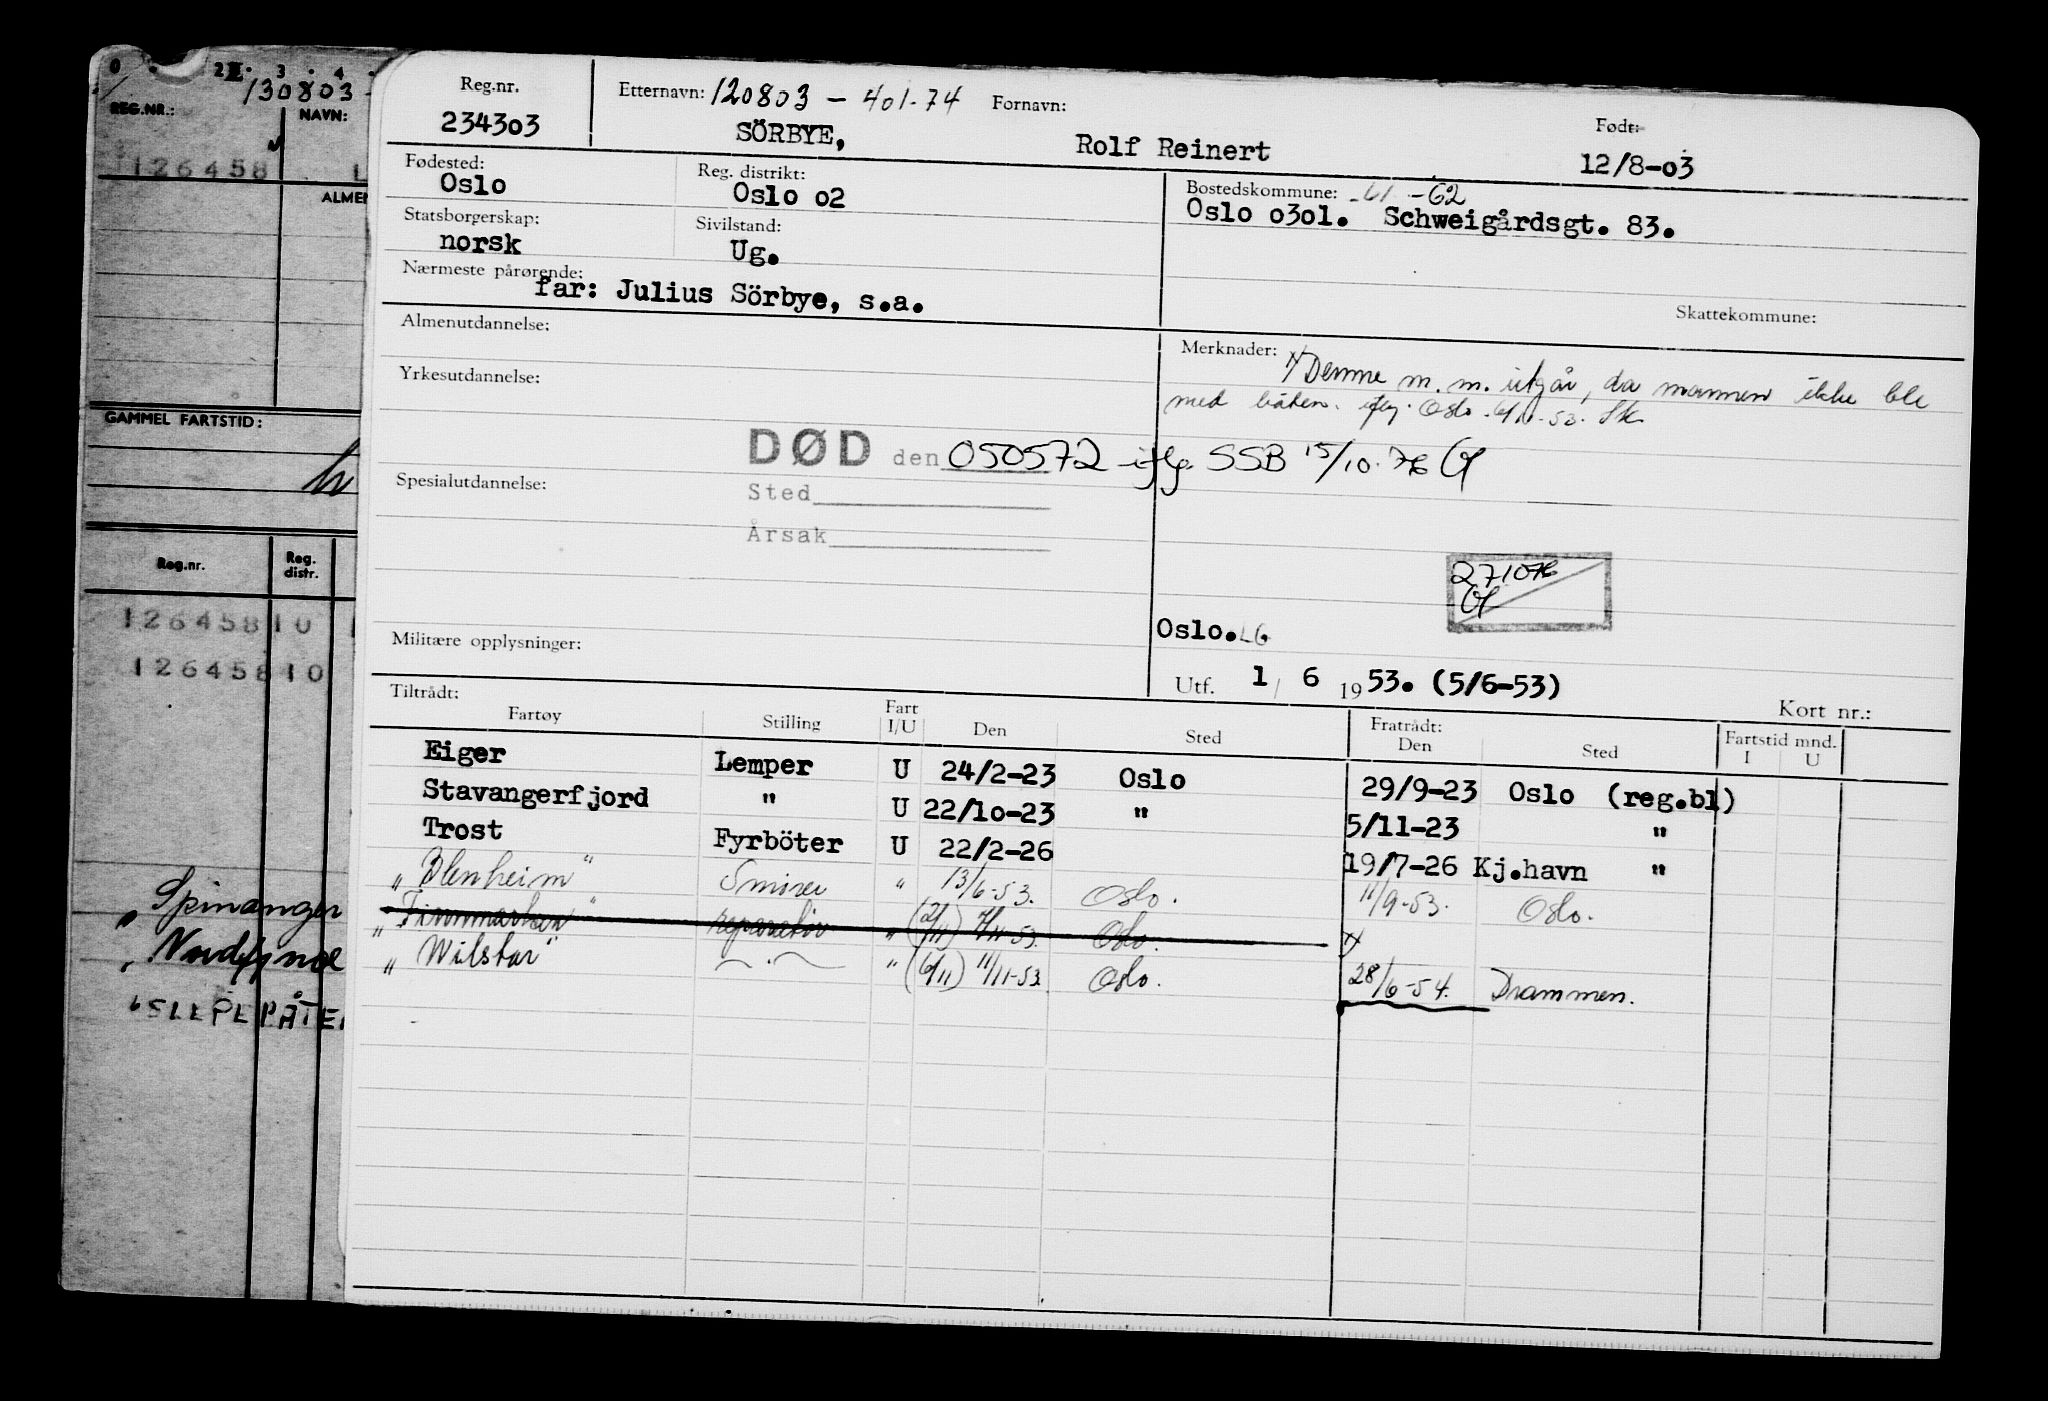 0 2 3 4
130803
REG.NR.: NAVN:
126458 L
ALMEN
GAMMEL FARTSTID:
Reg.nr. Reg. distr.
126458 10
126458 10
Spinanger
"SLEPEBÅTEN
Reg.nr. Etternavn: 120803 - 401-74 Fornavn: Født:
234303 SÖRBYE, Rolf Reinert 12/8-03
Fødested: Reg. distrikt: Bostedskommune: -61 -62
Oslo Oslo o2 Oslo o3ol. Schweigårdsgt. 83.
Statsborgerskap: Sivilstand:
norsk Ug.
Nærmeste pårørende:
far: Julius Sörbye, s.a.
Skattekommune:
Almenutdannelse: Merknader: x) Denne m.m. utgår, da mannen ikke ble
med båten. iflg. Oslo 6/11-53. Sk
Yrkesutdannelse:
DØD den 050572 iflg. SSB 15/10-76
Spesialutdannelse: Sted
Årsak
271076
Oslo. LG
Militære opplysninger:
Utf. 1/6 1953. (5/6-53)
Kort nr.:
Tiltrådt: Fratrådt: Fartstid mnd.
Fartøy Stilling Fart I/U Den Sted Den Sted I U
Eiger Lemper U 24/2-23 Oslo 29/9-23 Oslo (reg.bl)
Stavangerfjord " U 22/10-23 " 5/11-23 "
Trost Fyrböter U 22/2-26 19/7-26 Kj.havn "
"Blenheim" Smører " 13/6-53. Oslo. 11/9-53. Oslo.
"Finnmarken" reparatör " (2/11) 7/11-53. Oslo. x)
"Wilstar" -"- " (6/11) 11/11-53 Oslo. 28/6-54. Drammen.